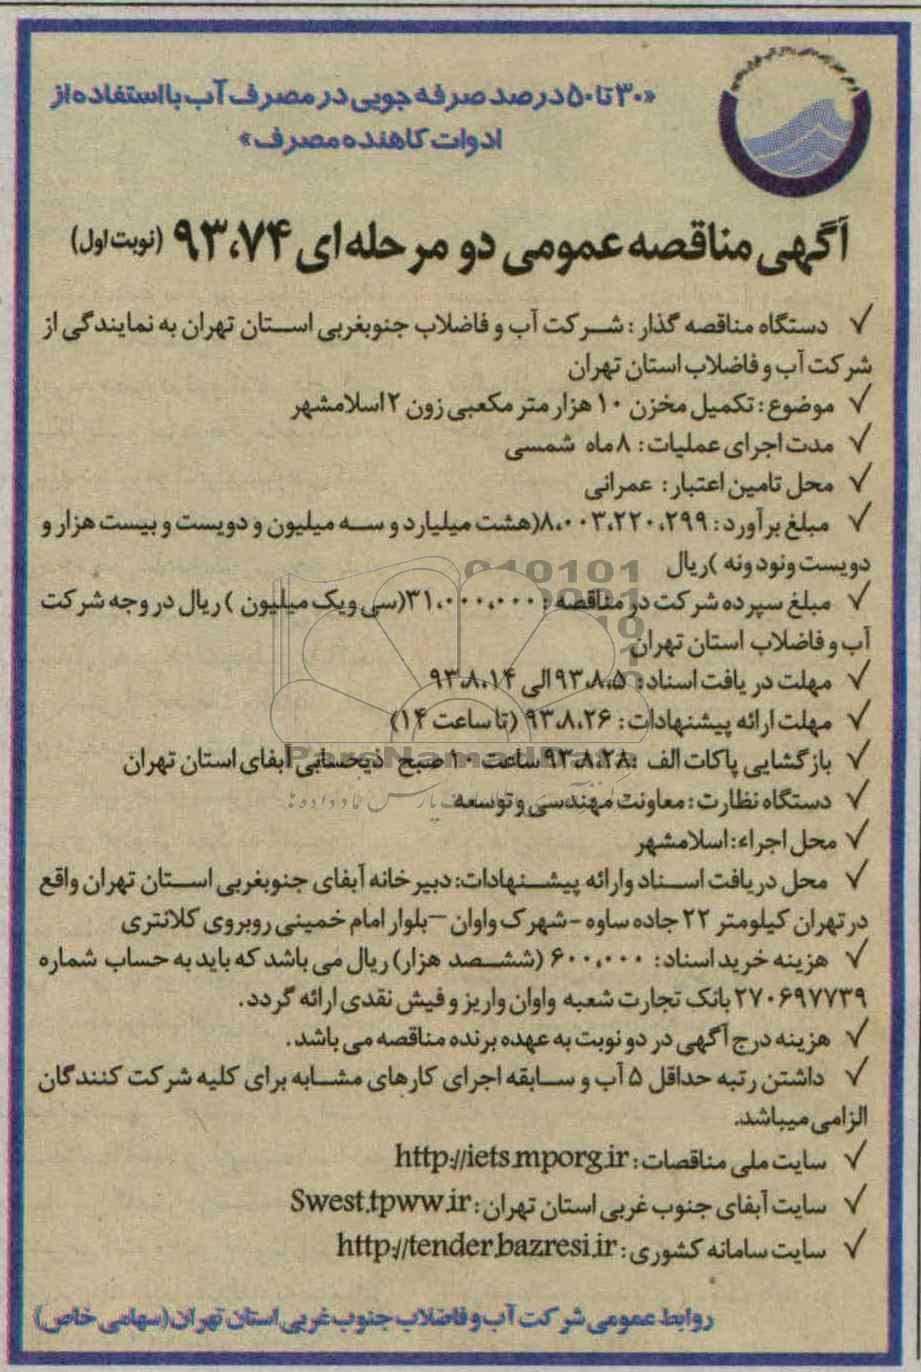 «۳۰ تا ۵۰ درصد صرفه جویی در مصرف آب با استفاده از
ادوات کاهنده مصرف»
آگهی مناقصه عمومی دو مرحله ای ۹۳،۷۴ (نوبت اول)
√ دستگاه مناقصه گذار : شرکت آب و فاضلاب جنوبغربی استان تهران به نمایندگی از
شرکت آب و فاضلاب استان تهران
√ موضوع : تکمیل مخزن ۱۰ هزار متر مکعبی زون ۲ اسلامشهر
√ مدت اجرای عملیات : ۸ ماه شمسی
√ محل تامین اعتبار : عمرانی
√ مبلغ برآورد : ۸،۰۰۳،۲۲۰،۲۹۹(هشت میلیارد و سه میلیون و دویست و بیست هزار و
دویست ونود ونه )ریال
√ مبلغ سپرده شرکت در مناقصه : ۳۱،۰۰۰،۰۰۰(سی ویک میلیون ) ریال در وجه شرکت
آب و فاضلاب استان تهران
√ مهلت دریافت اسناد: ۹۳،۸،۵ الی ۹۳،۸،۱۴
√ مهلت ارائه پیشنهادات : ۹۳،۸،۲۶ (تا ساعت ۱۴)
√ بازگشایی پاکات الف : ۹۳،۸،۲۸ ساعت ۱۰ صبح ذیحسابی آبفای استان تهران
√ دستگاه نظارت : معاونت مهندسی و توسعه
√ محل اجراء: اسلامشهر
√ محل دریافت اسناد وارائه پیشنهادات: دبیرخانه آبفای جنوبغربی استان تهران واقع
در تهران کیلومتر ۲۲ جاده ساوه - شهرک واوان – بلوار امام خمینی روبروی کلانتری
√ هزینه خرید اسناد : ۶۰۰،۰۰۰ (ششصد هزار) ریال می باشد که باید به حساب شماره
۲۷۰۶۹۷۷۳۹ بانک تجارت شعبه واوان واریز و فیش نقدی ارائه گردد.
√ هزینه درج آگهی در دو نوبت به عهده برنده مناقصه می باشد.
√ داشتن رتبه حداقل ۵ آب و سابقه اجرای کارهای مشابه برای کلیه شرکت کنندگان
الزامی میباشد.
√ سایت ملی مناقصات : http://iets.mporg.ir
√ سایت آبفای جنوب غربی استان تهران : Swest.tpww.ir
√ سایت سامانه کشوری : http://tender.bazresi.ir
روابط عمومی شرکت آب و فاضلاب جنوب غربی استان تهران (سهامی خاص)
ParsNamadData